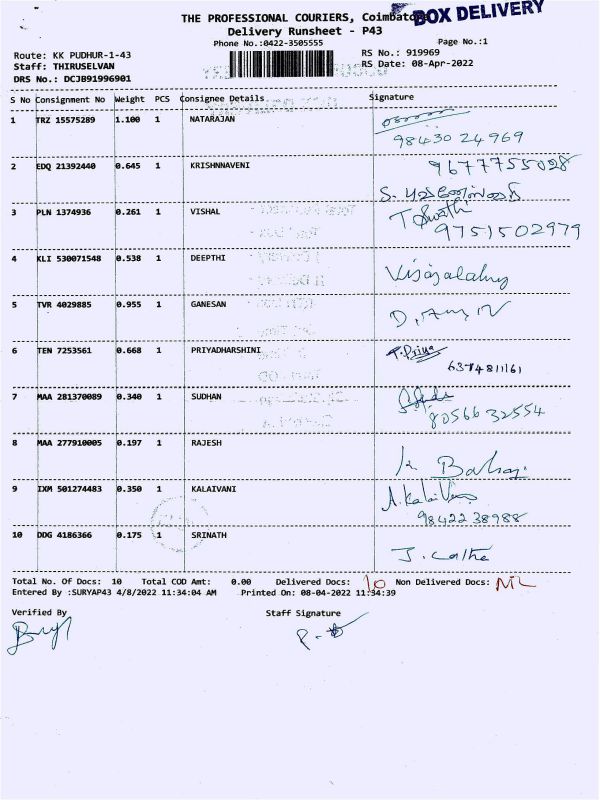 BOX DELIVERY
THE PROFESSIONAL COURIERS, Coimbatore
Delivery Runsheet - P43
Phone No.:0422-3505555
Page No.:1
Route: KK PUDHUR-1-43
RS No.: 919969
Staff: THIRUSELVAN
RS Date: 08-Apr-2022
DRS No.: DCJB91996901
S No Consignment No Weight PCS Consignee Details Signature
1 TRZ 15575289 1.100 1 NATARAJAN
98430 24969
2 EDQ 21392440 0.645 1 KRISHNNAVENI 9677755028
3 PLN 1374936 0.261 1 VISHAL
9751502979
4 KLI 530071548 0.538 1 DEEPTHI
5 TVR 4029885 0.955 1 GANESAN
6 TEN 7253561 0.668 1 PRIYADHARSHINI T. Priya
6374811161
7 MAA 281370089 0.340 1 SUDHAN
8056632554
8 MAA 277910005 0.197 1 RAJESH
9 IXM 501274483 0.350 1 KALAIVANI A. Kalaivani
98422 38988
10 DDG 4186366 0.175 1 SRINATH
Total No. Of Docs: 10 Total COD Amt: 0.00 Delivered Docs: 10 Non Delivered Docs: NIL
Entered By :SURYAP43 4/8/2022 11:34:04 AM Printed On: 08-04-2022 11:34:39
Verified By Staff Signature